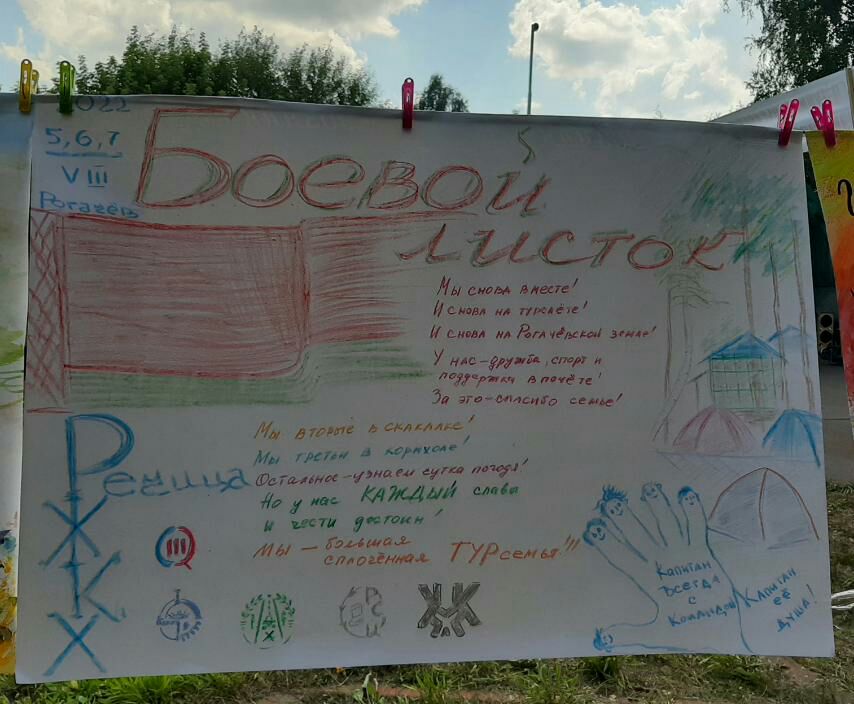 2022
5,6,7
VIII
Рогачёв
Боевой
листок
Мы снова вместе!
И снова на турслёте!
И снова на Рогачёвской земле!
У нас-дружба, спорт и
поддержка в почёте!
За это-спасибо семье!
Мы вторые в скакалке!
Мы третьи в корнхоле!
Остальное-узнаем сутка погодя!
Но у нас КАЖДЫЙ славы
и чести достоин!
Мы - большая
сплочённая ТУРсемья!!!
Речица
ЖКХ
Капитан
всегда
с
командой
Капитан
её
душа!